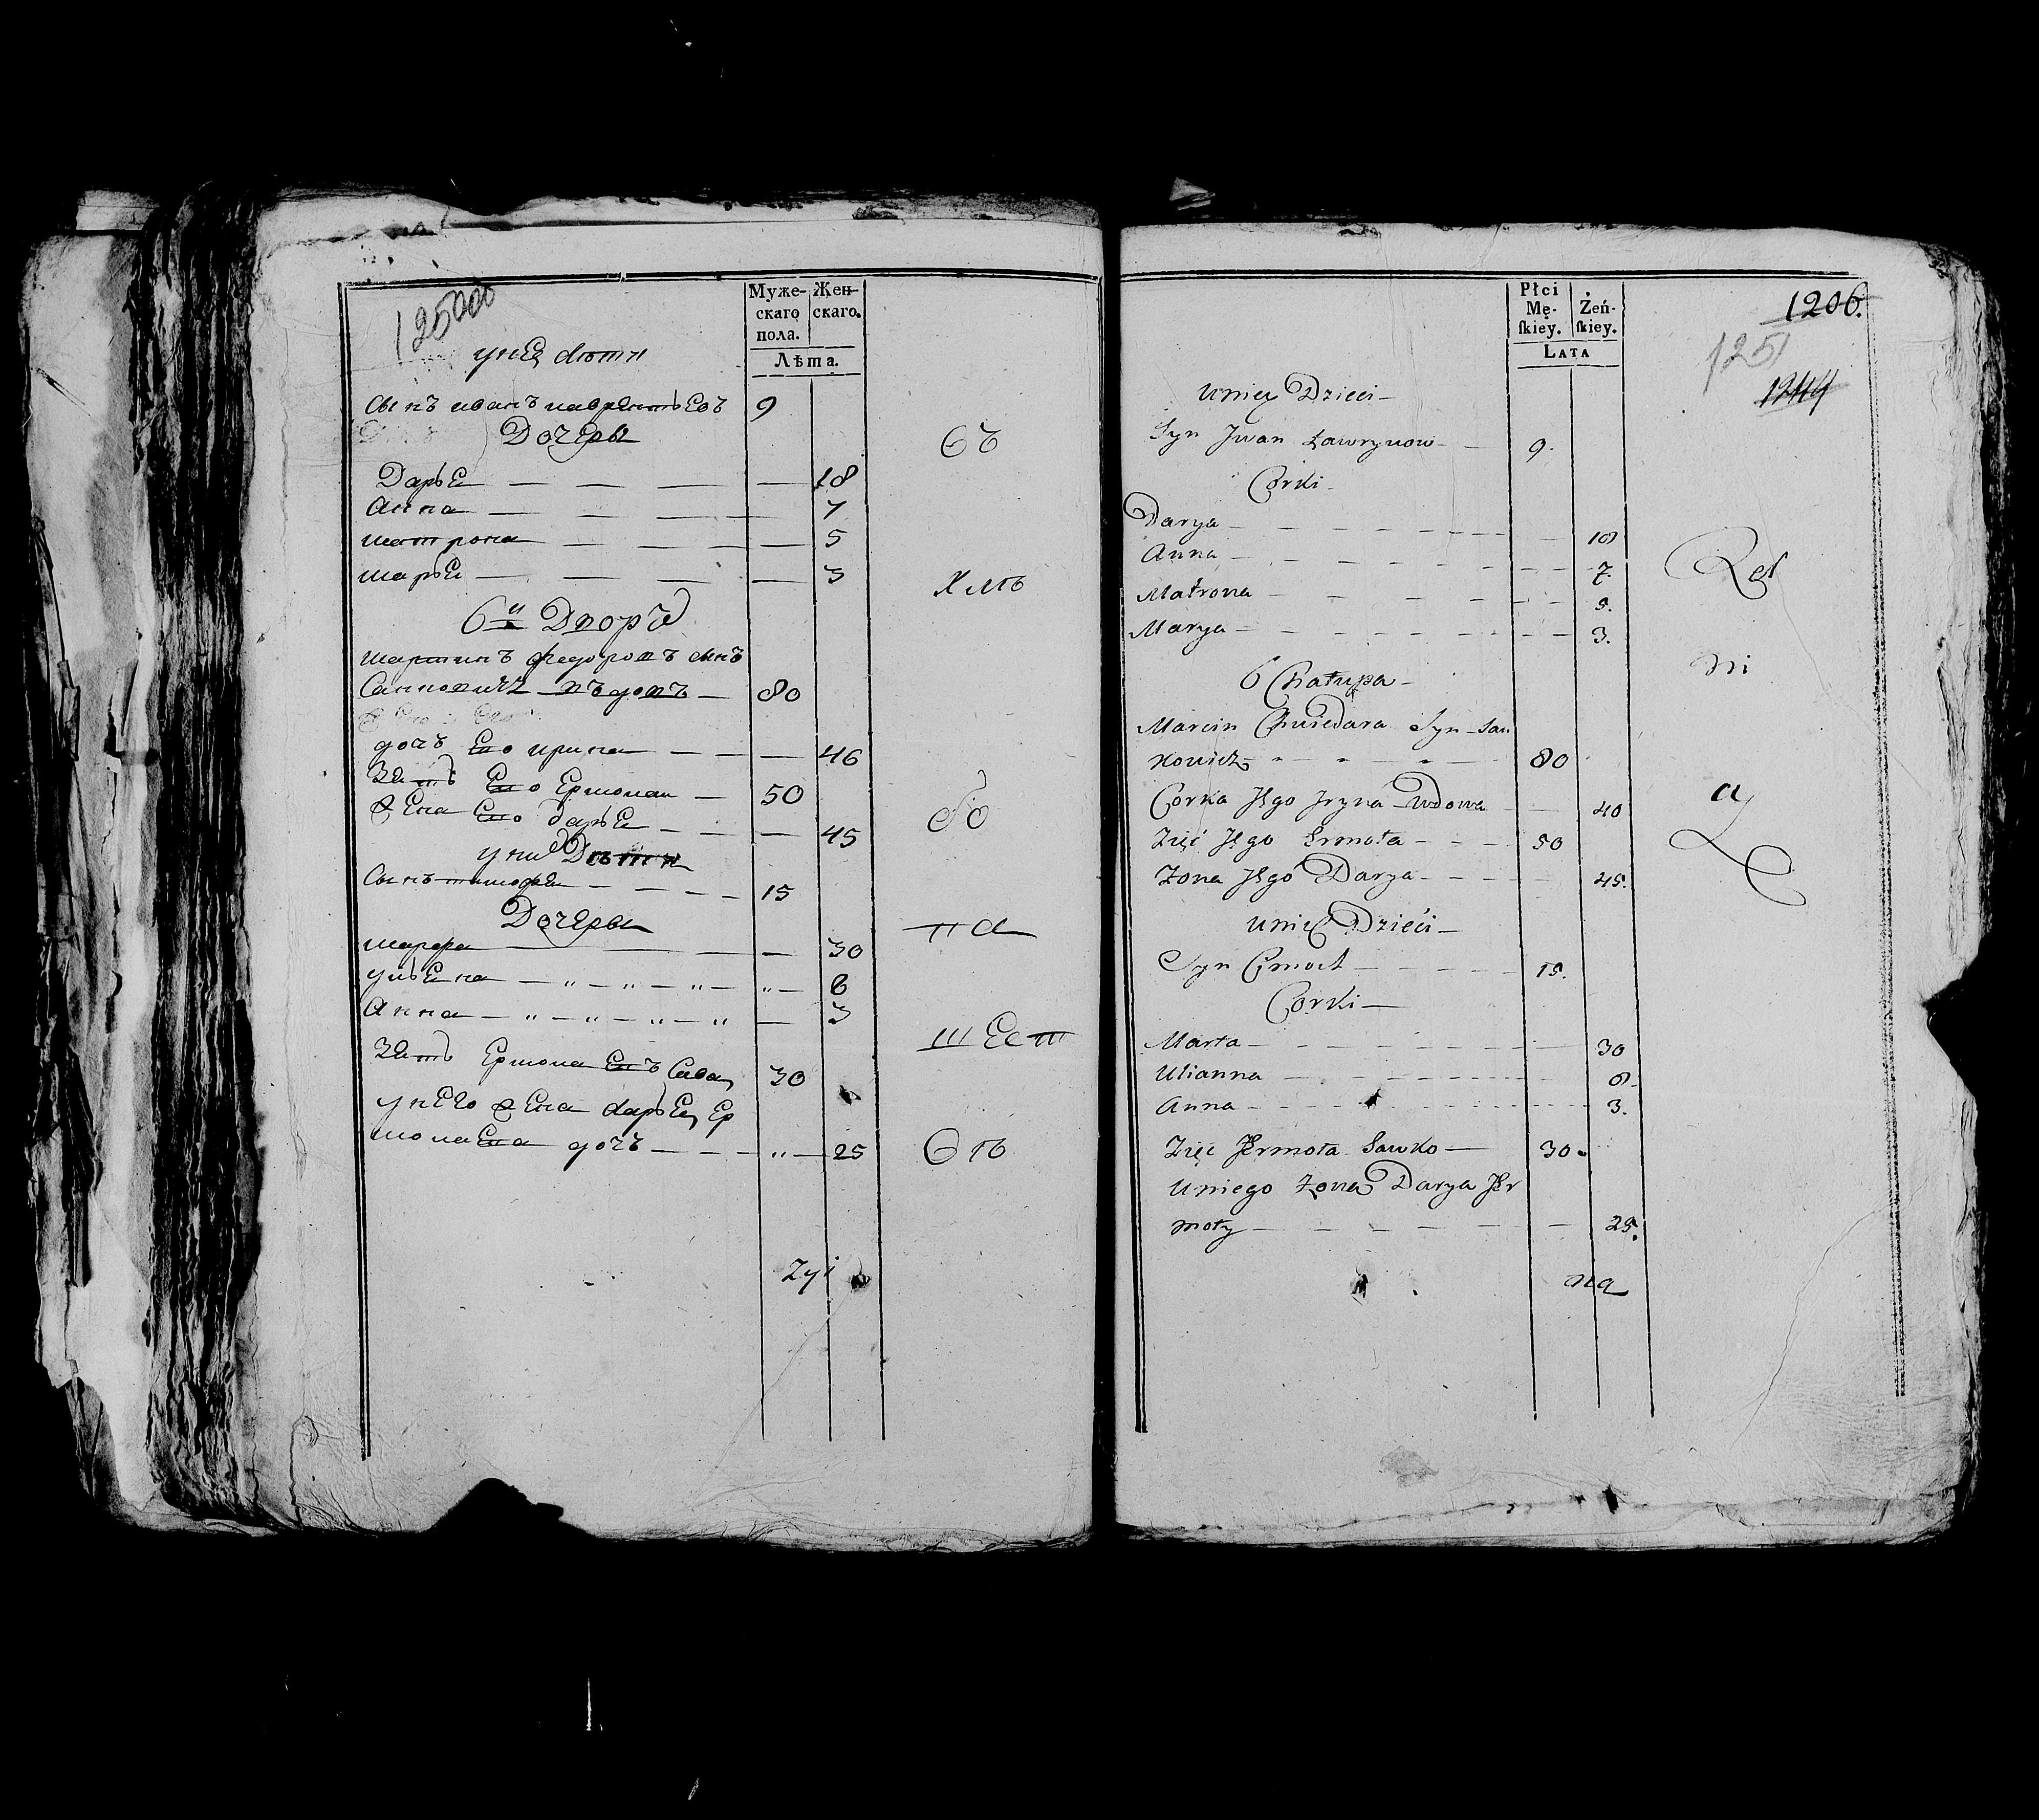 Муже-
скаго
пола.
Жен-
скаго.
Лѣта.
унеи дѣти
сынъ иванъ лаврентьевъ 9
Дочеры
Дарья — — — — 18
Анна — — — — 7
матрона — — — — 5
марья — — — — 3
6й Дворъ
мартинъ федоровъ сынъ
Санковичъ въдовъ — 80
дочъ Его ирина — — — 46
Зять Его Ермолай — 50
жена Его дарья — — — 45
Дѣти
сынъ тимофей — — — — 15
Дочеры
марфа — 30
ульена — „ — „ — „ — „ — 6
Анна — „ — „ — „ — „ — 3
Зять Ермола Сава 30
унего жена дарья Ер
дочъ — — — „ — 25
Zyi
съ
Хмъ
па
шест
Płci
Mę-
skiey.
Żeń-
skiey.
Lata
1206.
1251
1244
uniey Dzieci —
Syn Jwan Ławrynow — 9.
Corki —
Darya — 18
Anna — 7.
Matrona — 5.
Marya — 3.
6 Chałupa —
Marcin Chwiedora Syn San
kowicz — 80
Corka Jego Jryna Wdowa — 40
Zięć Jego Ermoła — 50
Zona Jego Darya — 45.
Dzieci —
Syn — 15.
Corki —
Marta — 30
Ulianna — 6.
Anna — 3.
Zięć Jermoła Sawko — 30
uniego Zona Darya Jer
moły — 25.
na